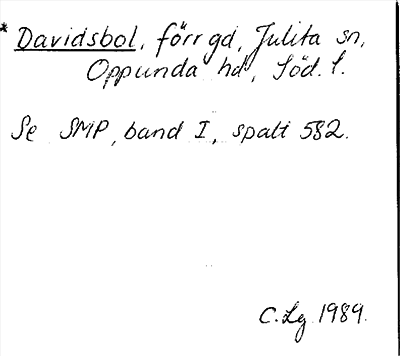 * Davidsbol, förr gd, Julita sn,
Oppunda hd, Söd. l.
Se SMP, band I, spalt 582.
C. Lg 1989.